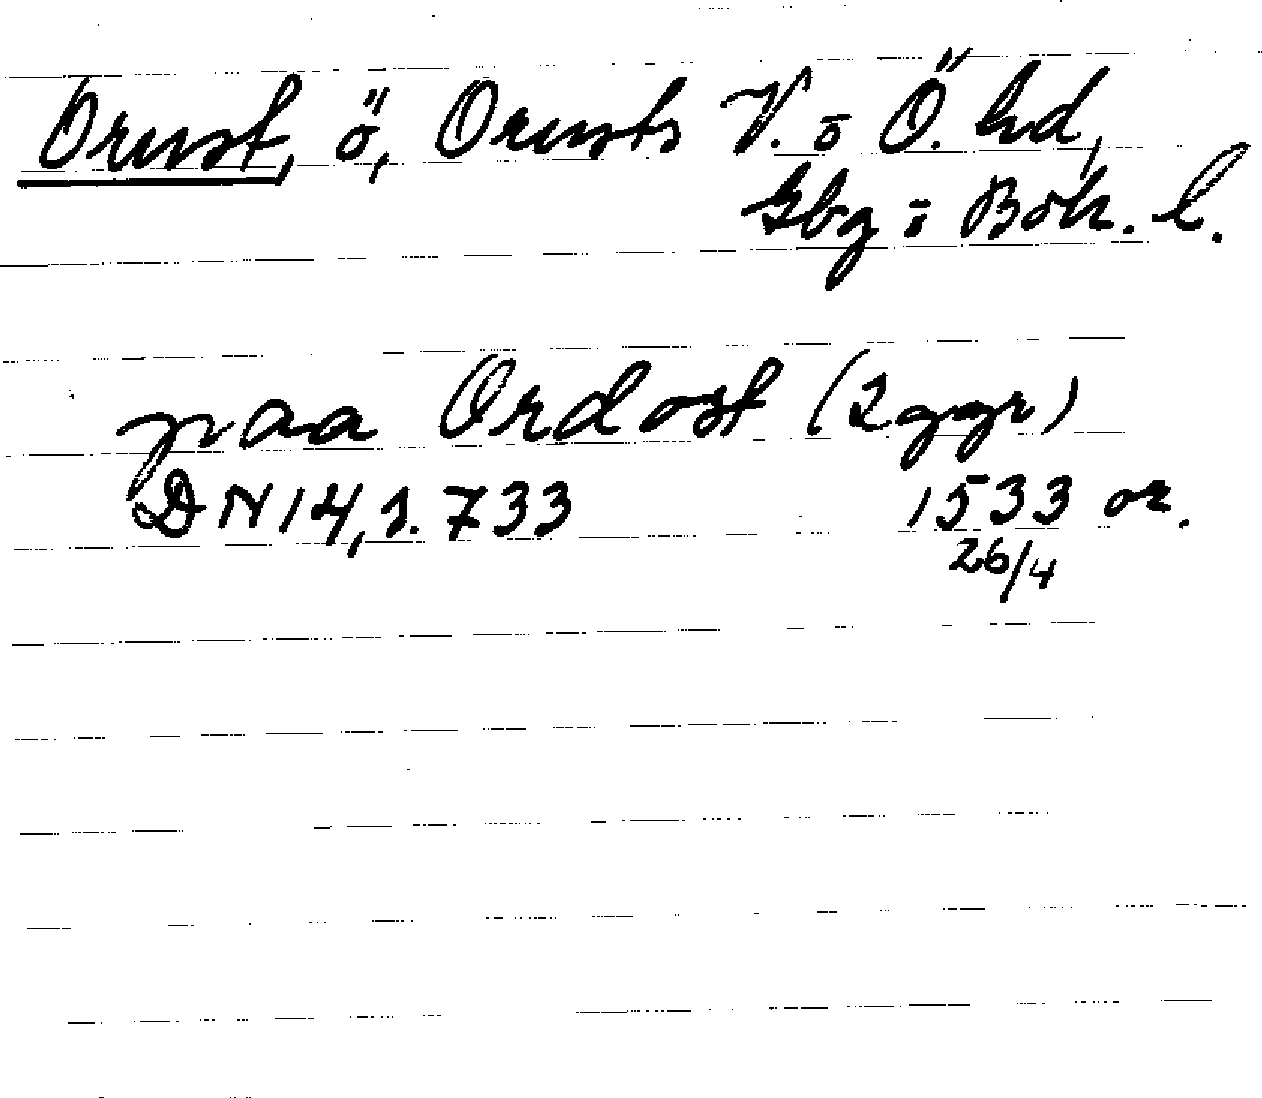 Orust, ö, Orusts V. o Ö. hd,
Gbg o Boh. l.
paa Ordost (2 ggr)
DN 14, s. 733 1533 or.
26/4